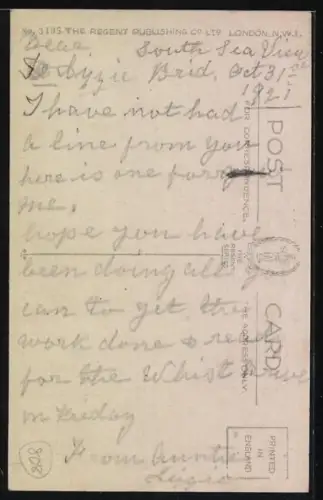 No. 3195. THE REGENT PUBLISHING CO LTD LONDON, N.W.1.
Dear South Sea View
Brid, Oct 31st
1921
I have not had
a line from you
here is one from
me,
hope you have
been doing all you
can to get the
work done & ready
for the Whist Drive
on Friday
From Auntie
POST CARD
FOR CORRESPONDENCE.
THE ADDRESS ONLY.
PRINTED
IN
ENGLAND
808